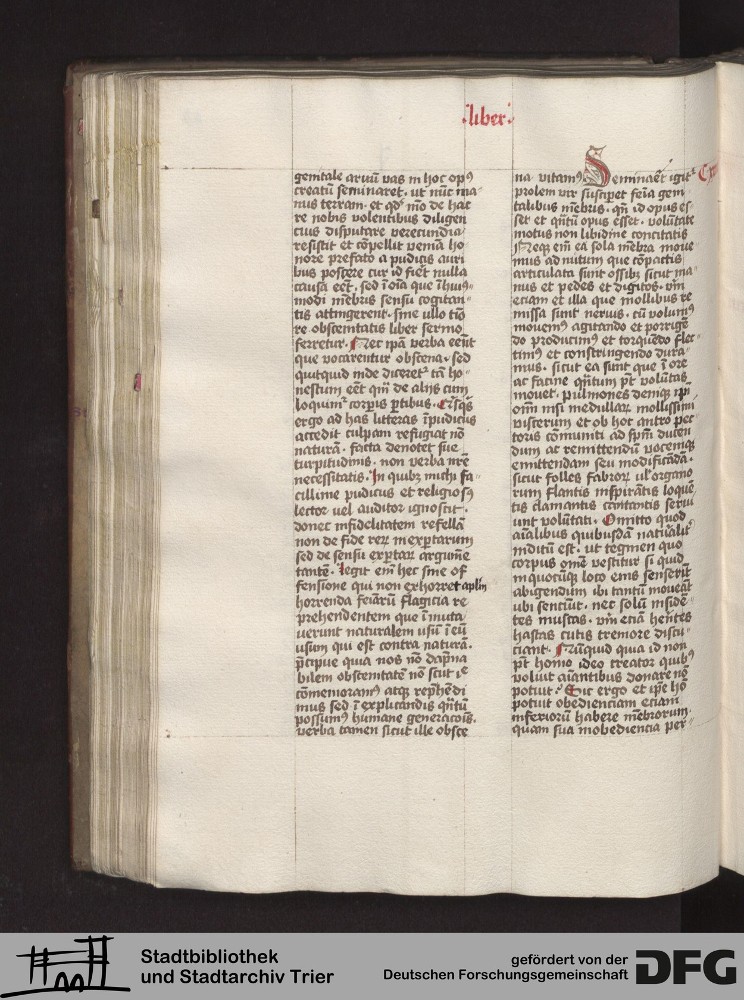 ·liber·
genitale aruū vas in hoc opꝰ
creatū seminaret · ut nūc ma-
nus terram · et qd' mō de hac
re nobis volentibus diligen
cius disputare verecundia
resistit et cōpellit veniā ho
nore prefato a pudicis auri
bus poscere cur id fieret nulla
causa eēt · sed ī oīa que ī huiꝰ-
modi mēbris sensū cogitan-
tis attingerent · sine ullo tīo
re obscenitatis liber sermo
ferretur · Nec ipā verba eēnt
que vocarentur obscena · sed
quitquid inde diceret᷑ tā ho-
nestum eēt qm̄ de alijs cum
loquim᷑ corpis ꝑtibus · Quisqs
ergo ad has litteras īpudicus
accedit culpam refugiat nō
naturā · facta denotet sue
turpitudinis · non verba nr̄e
necessitatis · In quibꝫ michi fa-
cillime pudicus et religiosꝰ
lector uel auditor ignoscit ·
donec infidelitatem refellā
non de fide reꝝ inexꝑtarum
sed de sensu exꝑtaꝝ argume
tantē · Legit em̄ hec sine of
fensione qui non exhorret aplm̄
horrenda feīaꝝ flagicia re
prehendentem que īmuta
uerunt naturalem usū ī eū
usum qui est contra naturā ·
p̄cipue quia nos nō dāpna
bilem obscenitatē nō scut ie
cōmemoramꝰ atqꝫ rep̄hēdi
mus sed ī explicandis qn̄tū
possumꝰ humane generacōis ·
verba tamen sicut ille obsce
na vitamꝰ Seminaēt igit᷑
prolem vir susciꝑet feīa geni
talibus mēbris · qn̄ id opus es-
set et qn̄tū opus esset · volūtate
motis non libidine concitatis
Neqꝫ em̄ ea sola mēbra moue
mus ad nutum que cōpactis
articulata sunt ossibꝫ sicut ma-
nus et pedes et digitos · vm̄
eciam et illa que mollibus re
missa sunt neruis · cū volumꝰ
mouemꝰ agitando et porrigē
do producimꝰ et torquēdo flec-
timꝰ et constringendo dura-
mus · sicut ea sunt que ī ore
ac facie qn̄tum pt̄ volūtas
mouet · pulmones deniqꝫ ipī
oīm nisi medullaꝝ mollissimi
viscerum et ob hoc antro pec
toris cōmuniti ad sp̄m ducen
dum ac remittendū vocemqꝫ
emittendam seu modificādā ·
sicut folles fabroꝝ ul' organo
rum flantis inspirātis loquē
tis clamantis cantantis serui
unt volūtati · Omitto quod
aīalibus quibusdā nat᷑alit᷑
inditū est · ut tegmen quo
corpus omē vestitur si quid
in quocūqꝫ loco eius senserīt
abigendum ibi tantū moueāt
ubi senciūt · nec solū inside-
tes muscas · vm̄ eciā her̄tes
hastas cutis tremore discu-
ciant · Nūquid quia id non
pt̄ homo ideo creator quibꝰ
voluit aīantibus donare nō
potuit · Sic ergo et ip̄e hō
potuit obedienciam eciam
inferiorū habere mēbrorum ·
quam sua inobediencia per-
Stadtbibliothek
und Stadtarchiv Trier
gefördert von der
Deutschen Forschungsgemeinschaft
DFG